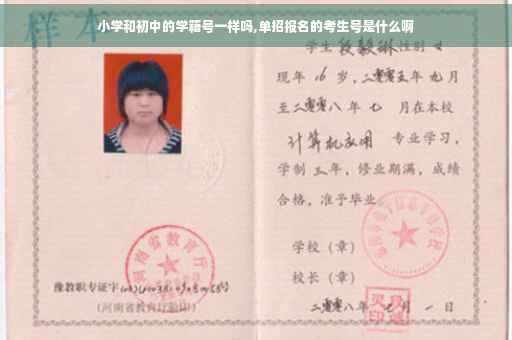 小学和初中的学藉号一样吗,单招报名的考生号是什么啊
样本
学生 段毅琳 性别 女
现年 16 岁,二零零五年 九月
至二零零八年 七 月在本校
计算机应用 专业学习,
学制 三年,修业期满,成绩
合格,准予毕业
学校(章)
校长(章)
二零零八年 月 一 日
河南省教育厅
豫教职专证字
(河南省教育厅验印)